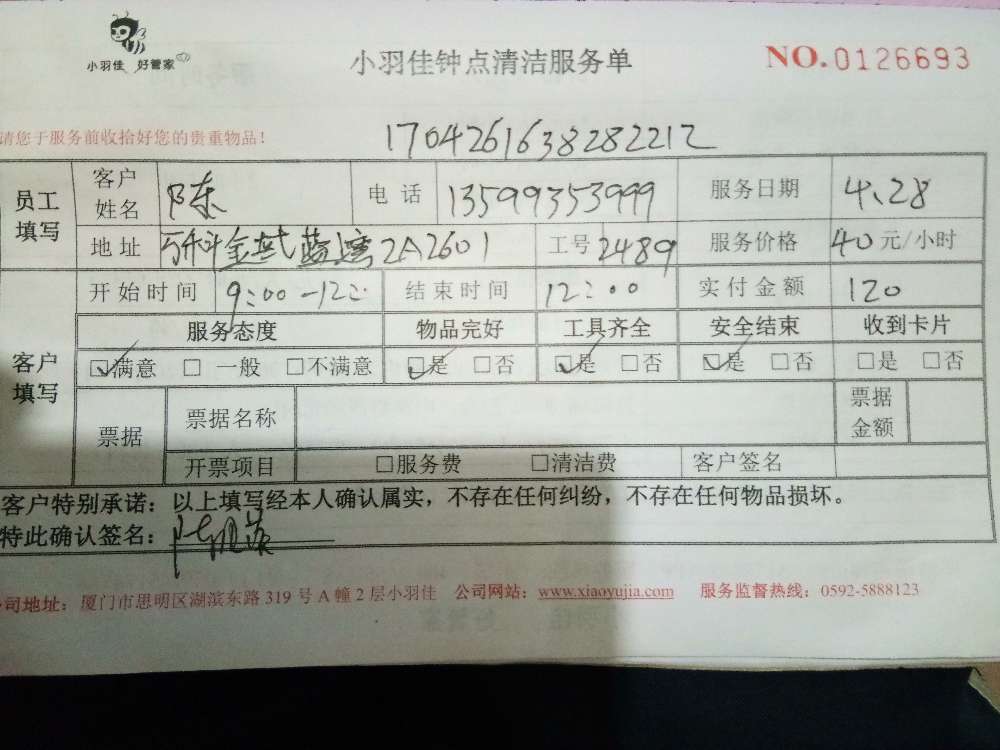 小羽佳 好管家
小羽佳钟点清洁服务单
NO.0126693
请您于服务前收拾好您的贵重物品!
1704261638282212
员工填写 客户姓名 陈 电话 13599353999 服务日期 4.28
地址 万科金域蓝湾2A2601 工号 2489 服务价格 40元/小时
客户填写 开始时间 9:00-12:00 结束时间 12:00 实付金额 120
服务态度 物品完好 工具齐全 安全结束 收到卡片
☑满意 □一般 □不满意 ☑是 □否 ☑是 □否 ☑是 □否 □是 □否
票据 票据名称 票据金额
开票项目 □服务费 □清洁费 客户签名
客户特别承诺:以上填写经本人确认属实,不存在任何纠纷,不存在任何物品损坏。
特此确认签名:
公司地址:厦门市思明区湖滨东路319号A幢2层小羽佳 公司网站:www.xiaoyujia.com 服务监督热线:0592-5888123